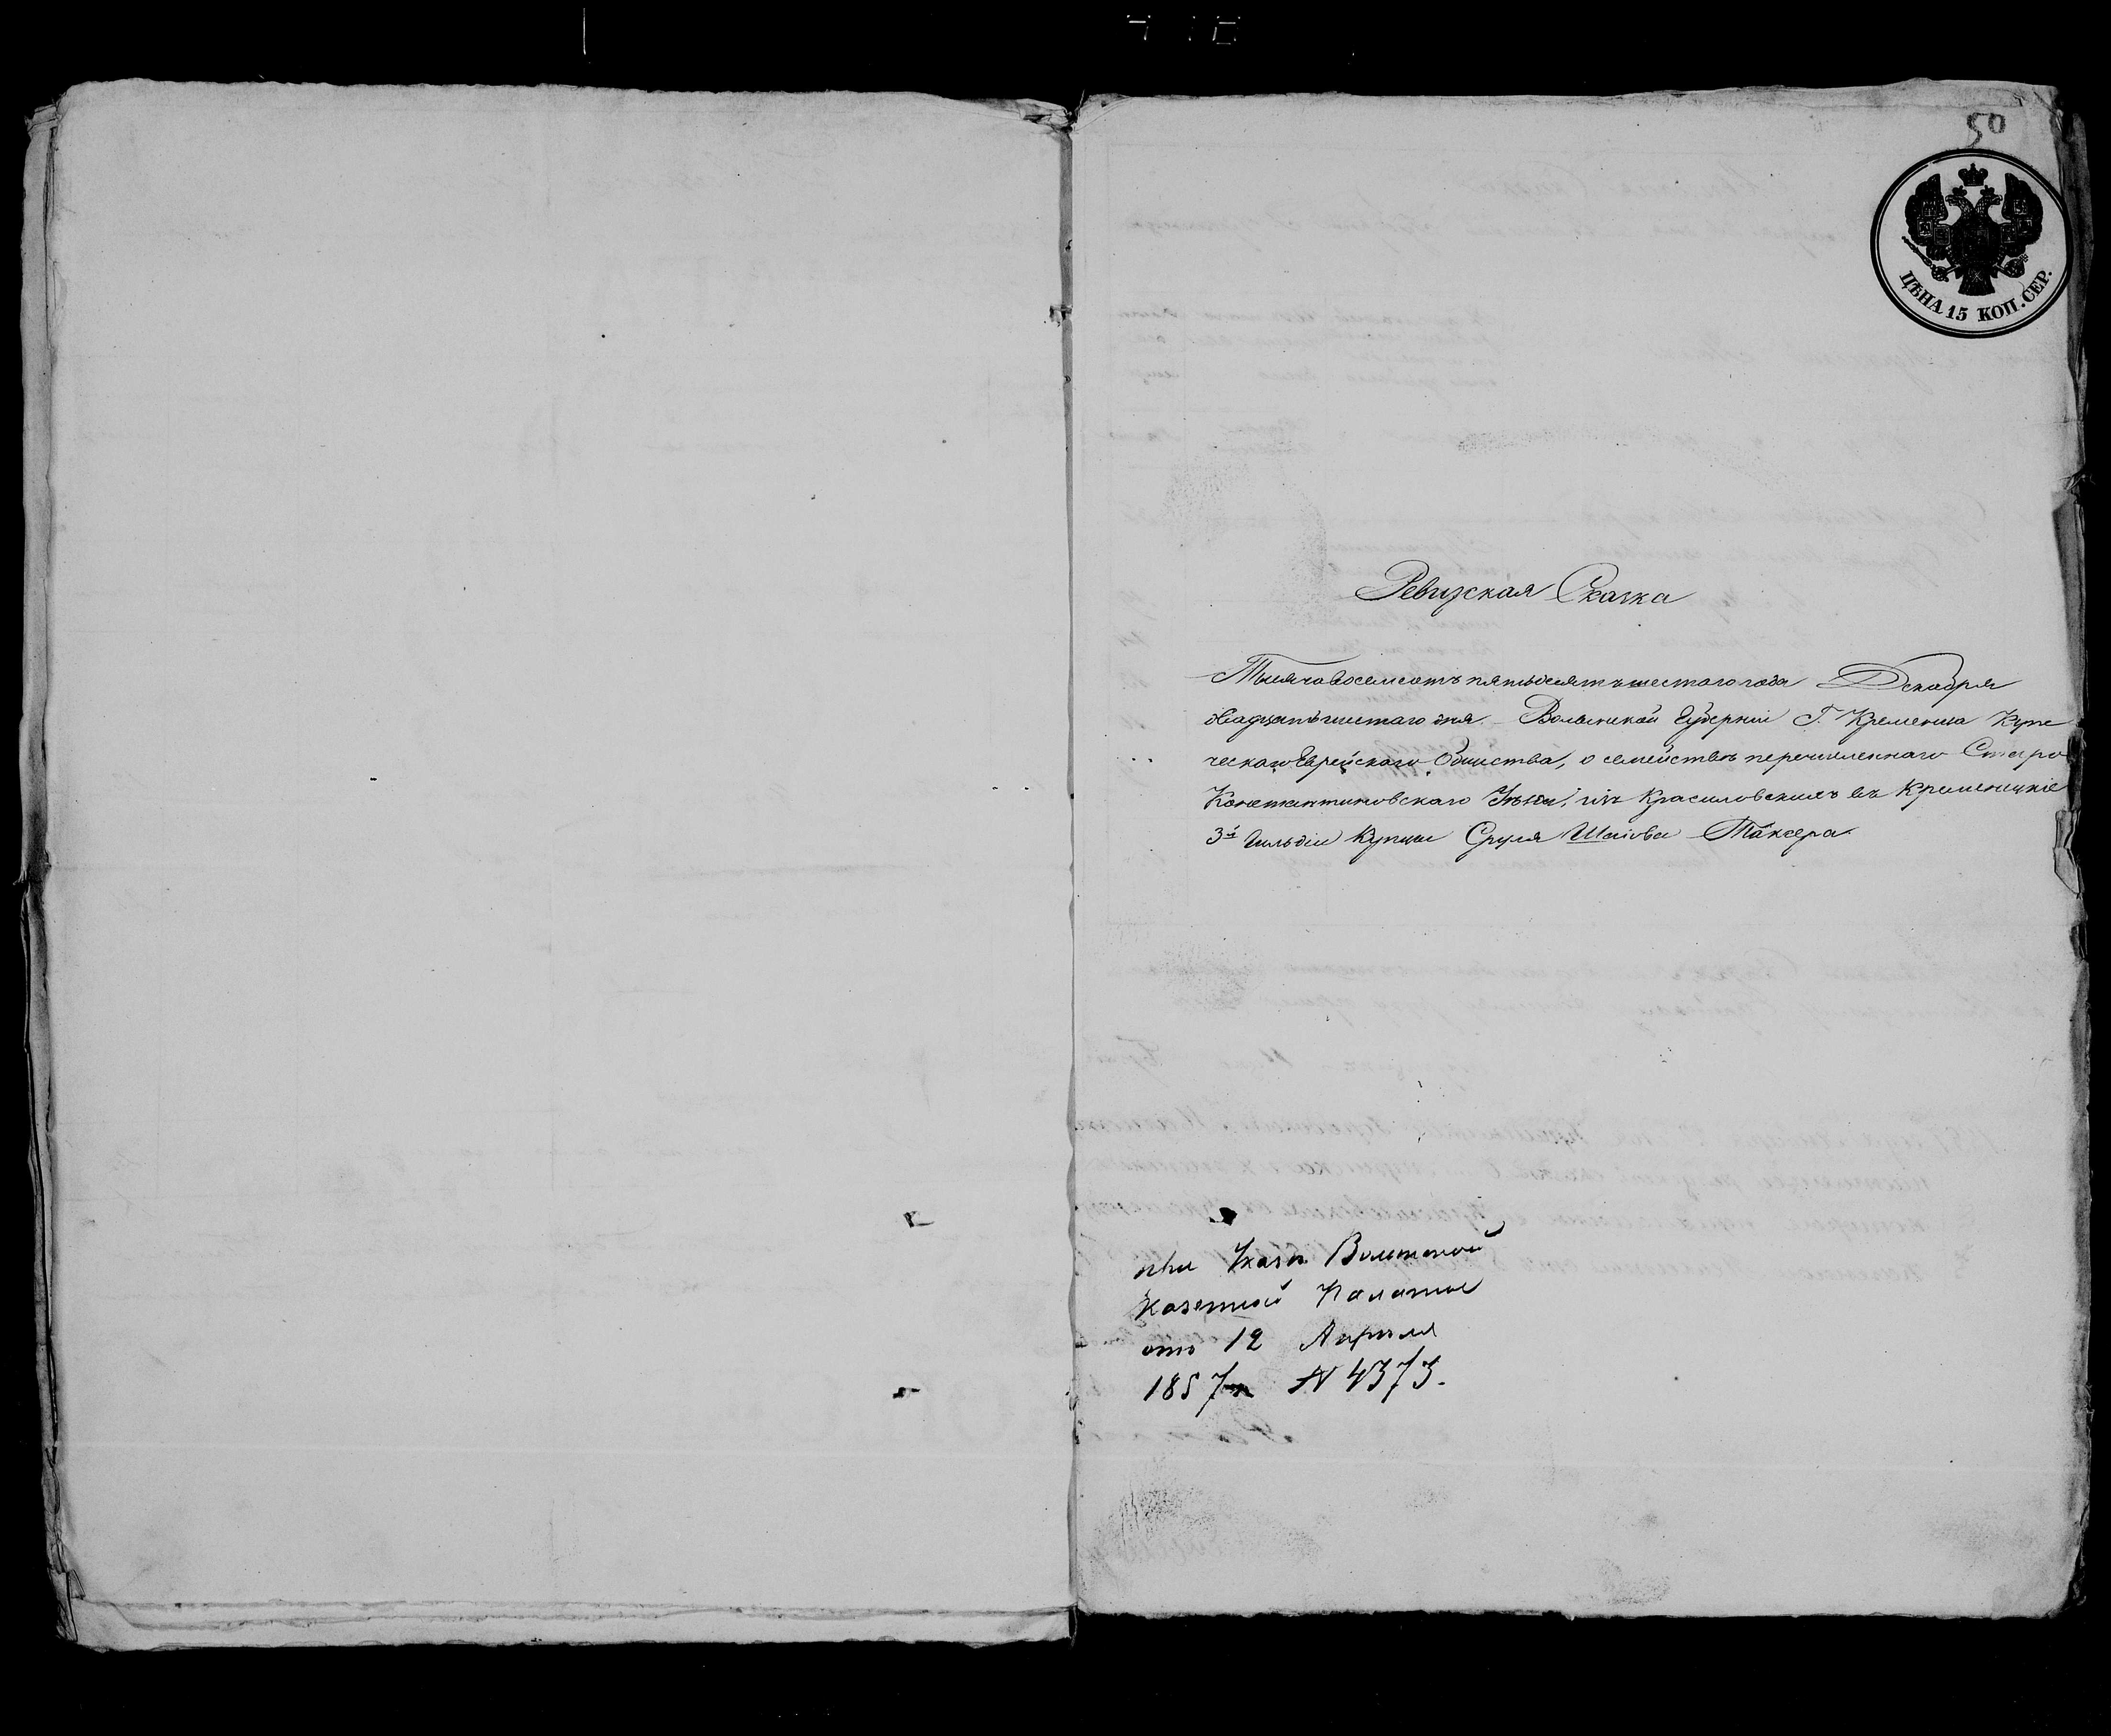 50
ЦѢНА 15 КОП. СЕР.
Ревизская Сказка
Тысяча восемсотъ пятьдесятъ шестаго года Декабря
двадцать шестаго дня. Волынской Губерніи Г. Кременца Купе
ческаго Еврейскаго Общества, о семействѣ перечисленнаго Старо
Константиновскаго Уѣзда, изъ Красиловскихъ въ Кременецкіе
3й гильдіи Купцы Сруля Шаіова Таксера
при Указѣ Волынской
Казенной Палаты
отъ 12 Апрѣля
1857 г N 4373.